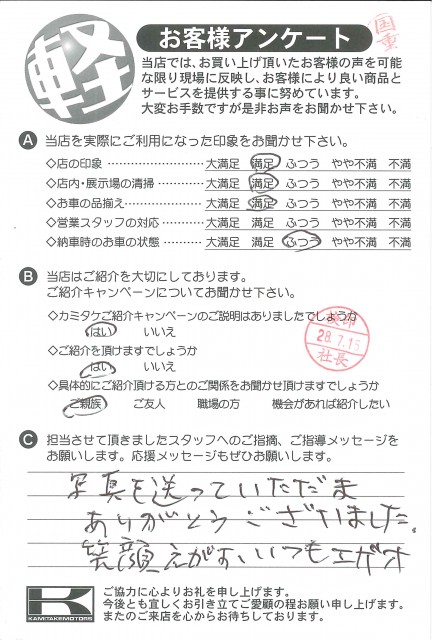 軽
お客様アンケート
国重
当店では、お買い上げ頂いたお客様の声を可能
な限り現場に反映し、お客様により良い商品と
サービスを提供する事に努めています。
大変お手数ですが是非お声をお聞かせ下さい。
A 当店を実際にご利用になった印象をお聞かせ下さい。
◇店の印象 …………………… 大満足 満足 ふつう やや不満 不満
◇店内・展示場の清掃 ………… 大満足 満足 ふつう やや不満 不満
◇お車の品揃え ……………… 大満足 満足 ふつう やや不満 不満
◇営業スタッフの対応 ………… 大満足 満足 ふつう やや不満 不満
◇納車時のお車の状態 ……… 大満足 満足 ふつう やや不満 不満
B 当店はご紹介を大切にしております。
ご紹介キャンペーンについてお聞かせ下さい。
◇カミタケご紹介キャンペーンのご説明はありましたでしょうか
はい いいえ
28.7.15
社長
◇ご紹介を頂けますでしょうか
はい いいえ
◇具体的にご紹介頂ける方とのご関係をお聞かせ頂けますでしょうか
ご親族 ご友人 職場の方 機会があれば紹介したい
C 担当させて頂きましたスタッフへのご指摘、ご指導メッセージを
お願いします。応援メッセージもぜひお願いします。
写真を送っていただだま
ありがとうございました。
笑顔えがすいいつもエガオ
K
KAMITAKEMOTORS
ご協力に心よりお礼を申し上げます。
今後とも宜しくお引き立てご愛顧の程お願い申し上げます。
またのご来店を心からお待ちしております。